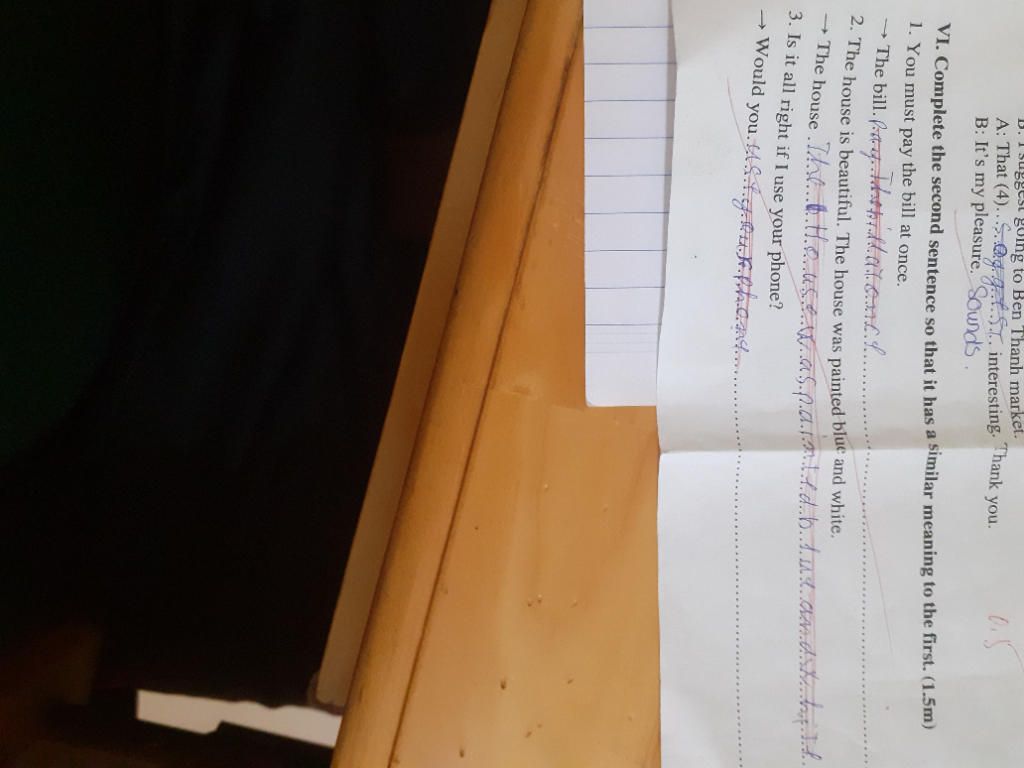 B: I suggest going to Ben Thanh market.
A: That (4)... interesting. Thank you.
B: It's my pleasure. Sounds.
0.5
VI. Complete the second sentence so that it has a similar meaning to the first. (1.5m)
1. You must pay the bill at once.
→ The bill pay
2. The house is beautiful. The house was painted blue and white.
→ The house The House was painted blue and
3. Is it all right if I use your phone?
→ Would you use your phone